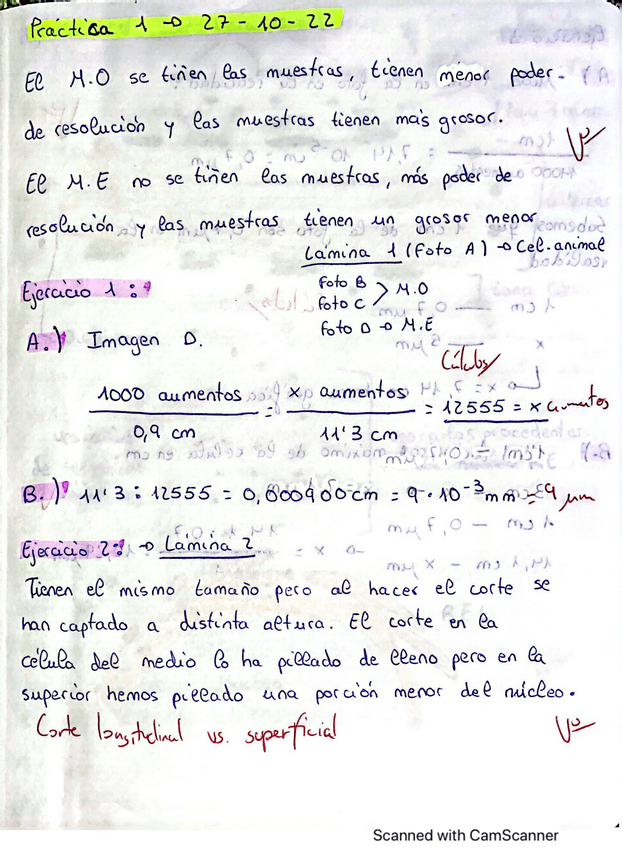 Práctica 1 → 27-10-22
El M.O se tiñen las muestras, tienen menor poder
de resolución y las muestras tienen más grosor.
El M.E no se tiñen las muestras, más poder de
resolución y las muestras tienen un grosor menor
Lámina 1 (Foto A) → Cel. animal
Ejercicio 1:
Foto B
Foto C > M.O
Foto D → M.E
A.) Imagen D.
Cálculos
1000 aumentos / 0,9 cm = x aumentos / 11'3 cm = 12555 = x aumentos
B.) 11'3 : 12555 = 0,000900 cm = 9·10⁻³ mm = 9 µm
Ejercicio 2: → Lámina 2
Tienen el mismo tamaño pero al hacer el corte se
han captado a distinta altura. El corte en la
célula del medio lo ha pillado de lleno pero en la
superior hemos pillado una porción menor del núcleo.
Corte longitudinal vs. superficial
Scanned with CamScanner